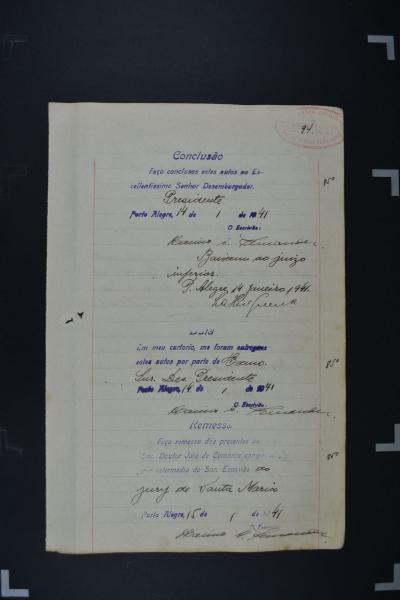 94.
Conclusão
Faço conclusos estes autos ao Ex-
cellentissimo Senhor Desembargador.
850
Presidente
Porto Alegre, 14 de 1 de 1941
O Escrivão:
Baixem ao juizo
inferior.
P. Alegre, 14 Janeiro 1941.
Data
Em meu cartorio, me foram entregues
estes autos por parte do Exmo.
850
Snr. Des. Presidente
Porto Alegre, 14 de 1 de 1941
O Escrivão:
Remessa
Faço remessa dos presentes ao
Snr. Doutor Juiz de Comarca
850
por intermedio do Snr. Escrivão do
jury de Santa Maria
Porto Alegre, 15 de 1 de 1941
O Escrivão: